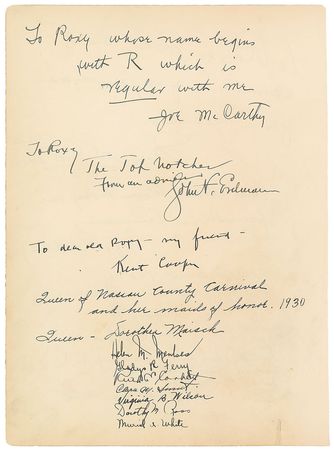 To Roxy whose name begins
with R which is
regular with me
Joe McCarthy
To Roxy
The Top Notcher
From an admirer
John H. Erdmann
To dear old Roxy - my friend -
Kent Cooper
Queen of Nassau County Carnival
and her maids of honor. 1930
Queen - Dorothea
Helen M.
Gladys R. Terry
Virginia B. Wilson
Dorothy Ross
Muriel White